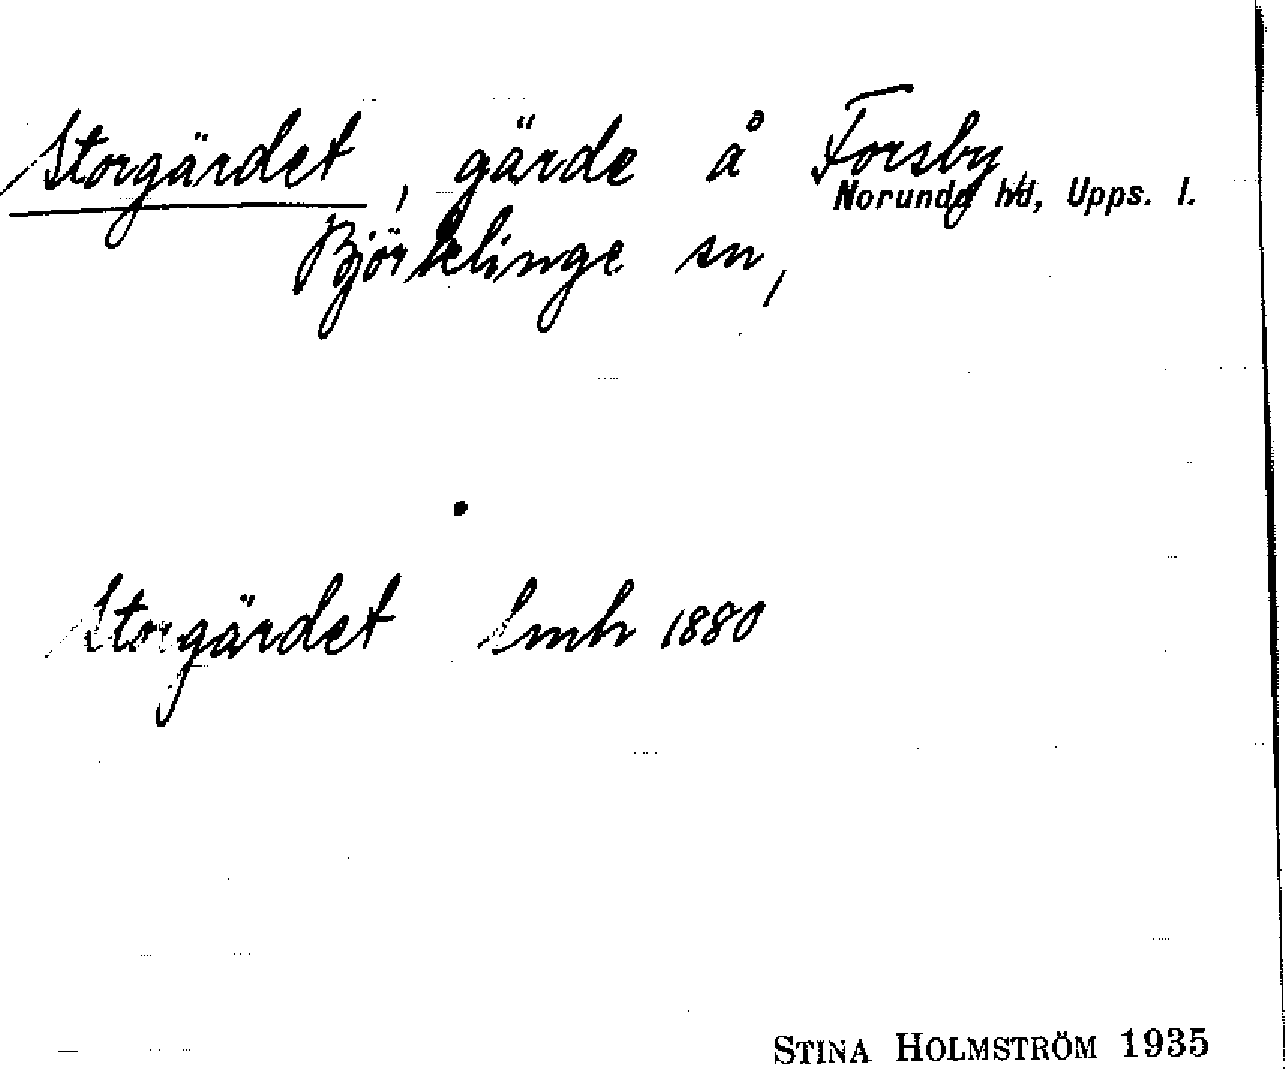 Storgärdet, gärde å Forsby,
Norunda hd, Upps. l.
Björklinge sn,
Storgärdet Smh 1880
STINA HOLMSTRÖM 1935